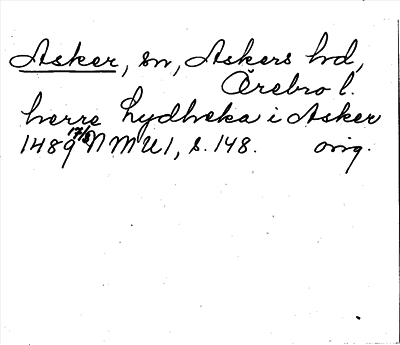 Asker, sn, Askers hd,
Örebro l.
herre Lydheka i Asker
1489 17/8 NMU 1, s. 148. orig.